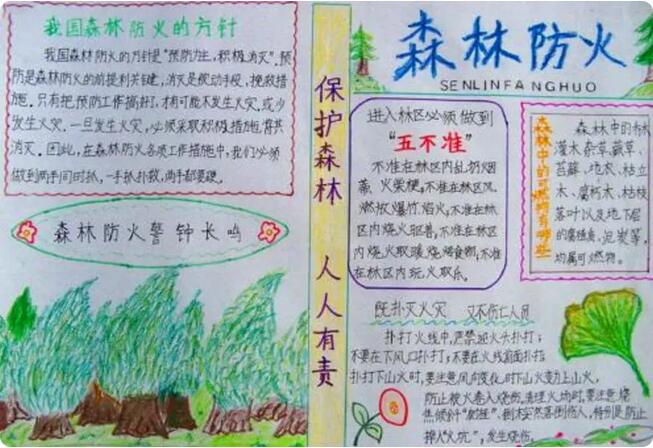 我国森林防火的方针
我国森林防火的方针是"预防为主，积极消灭"。预
防是森林防火的前提和关键，消灭是被动手段，挽救措
施。只有把预防工作搞好，才有可能不发生火灾或少
发生火灾。一旦发生火灾，必须采取积极措施，将其
消灭。因此，在森林防火各项工作措施中，我们必须
做到两手同时抓，一手抓扑救，两手都要硬。
森林防火警钟长鸣
保护森林 人人有责
森林防火
SENLINFANGHUO
进入林区必须做到
"五不准"
不准在林区内乱扔烟
蒂、火柴梗；不准在林区
燃放爆竹、焰火；不准在林
区内烧火驱兽；不准在林区
内烧火取暖、烧烤食物；不准
在林区内玩火取乐。
森林中的可燃物有哪些
森林中的
灌木、杂草、蕨草、
苔藓、地衣、枯立
木、腐朽木、枯枝
落叶以及地下层
的腐殖质、泥炭等，
均属可燃物。
既扑灭火灾 又不伤亡人员
扑打火线中，严禁迎火头扑打；
不要在下风口扑打；不要在火线前面扑打；
扑打下山火时，要注意风向变化时下山火变为上山火，
防止被火卷入烧伤。清理火场时，要注意烧
焦倾斜"树挂"、倒木突然落倒伤人，特别是防止
掉入"火坑"，发生烧伤。